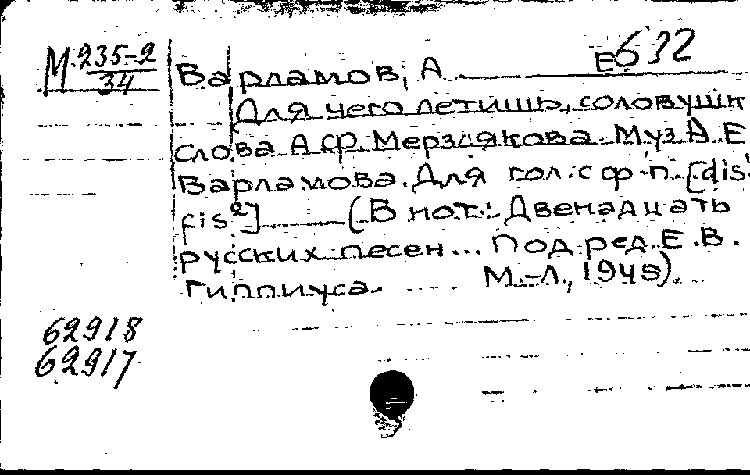 М 235-2
34
Е632
Варламов, А
Для чего летишь, соловушк
Слова А.Ф. Мерзлякова. Муз. А. Е
Варламова. Для гол. с ф-п. [dis'
fis²] (В нот.: Двенадцать
русских песен... Под ред. Е. В.
Гиппиуса. М.-Л., 1949).
62918
62917